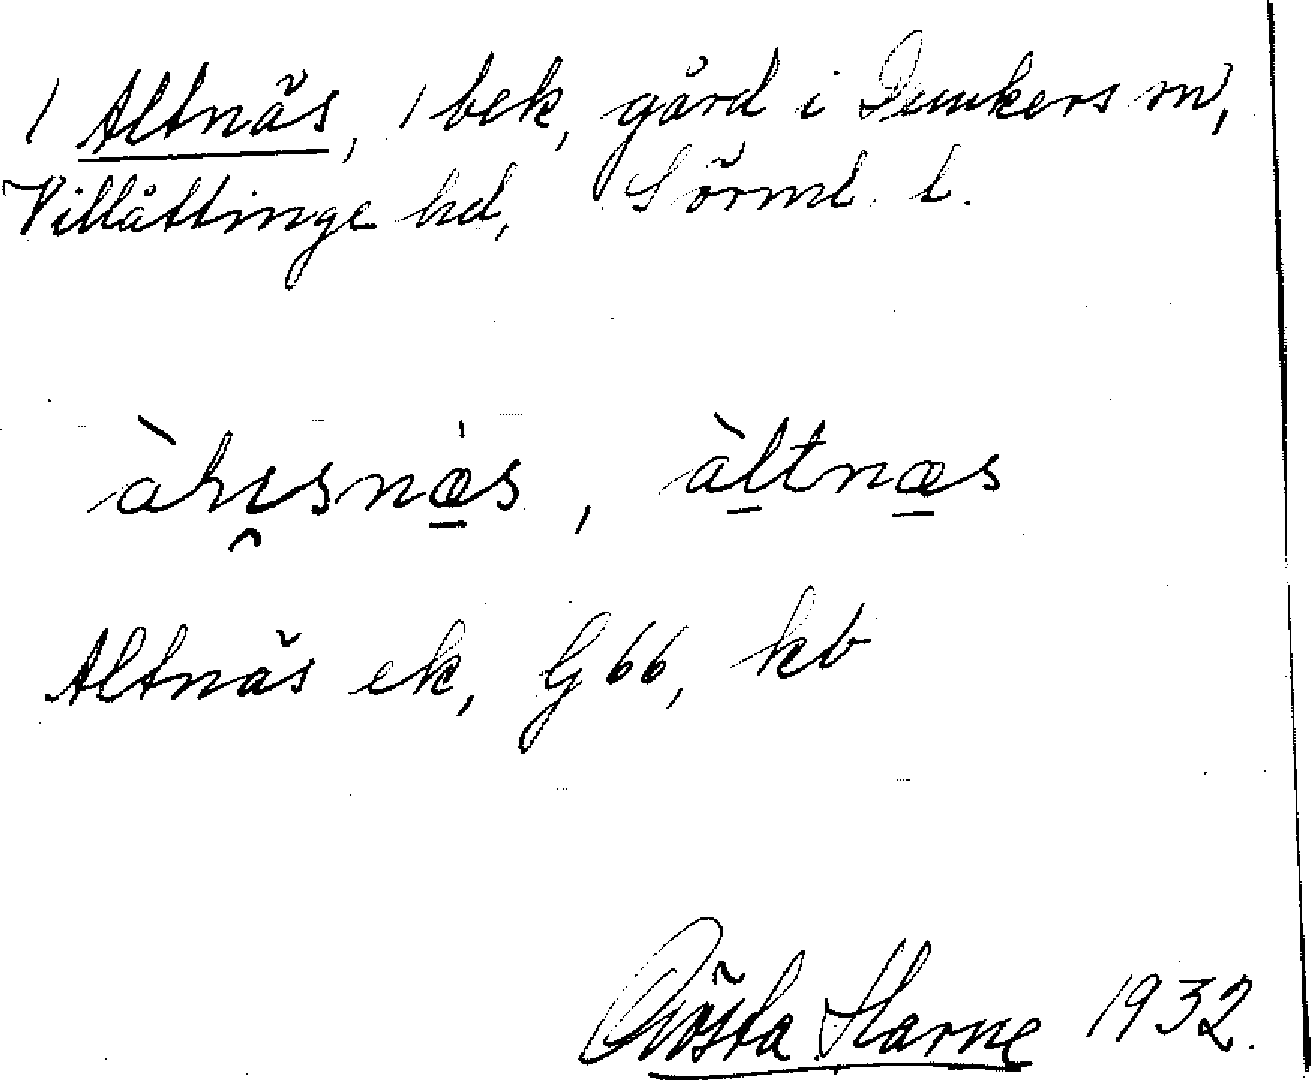 1 Altnäs, 1 bek, gård i Dunkers sn,
Villåttinge hd, Sörml. l.
àltnæs
Altnäs ek, G 66, kb
Gösta Harne 1932.